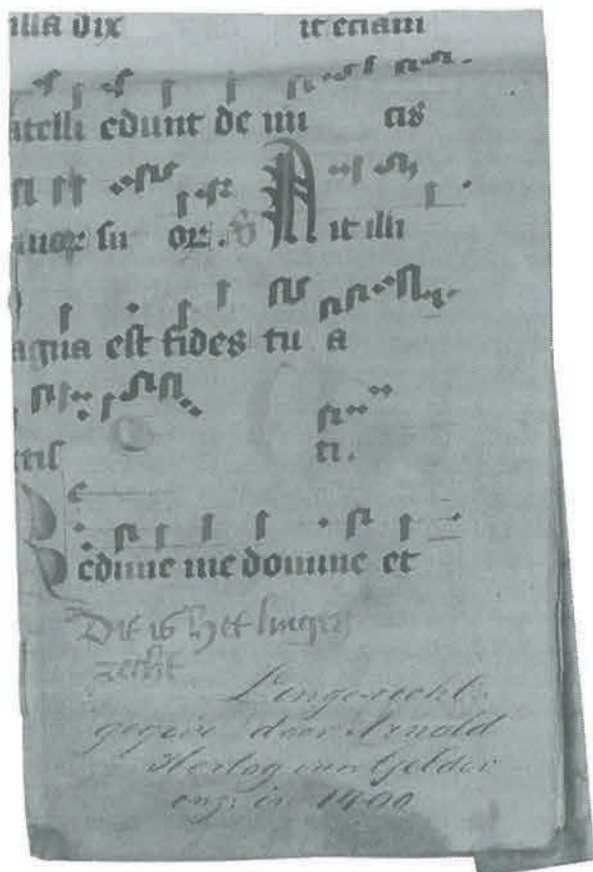 illa dix it etiam
atelli edunt de mi cis
or su or. A it illi
agna est fides tu a
ti.
Redime me domine et
Dit is het linger
recht
Lingerecht
gegeve door Arnold
Hertog van Gelder
in 1400